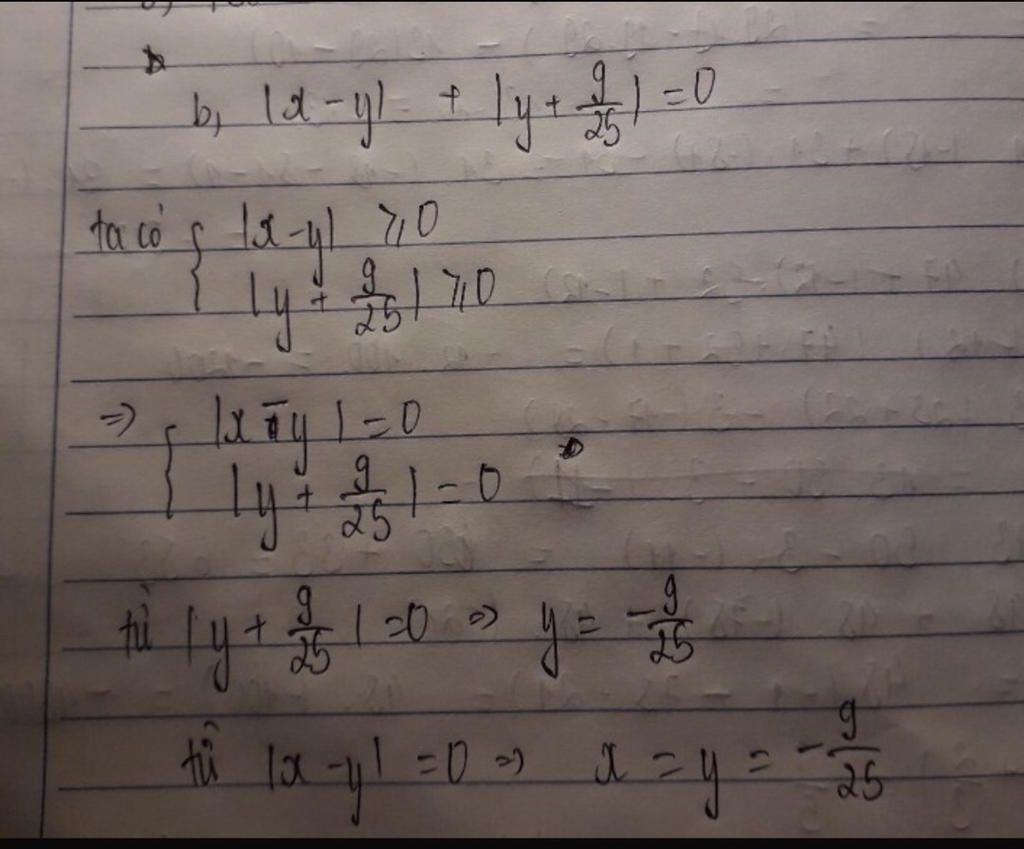 b, |x - y| + |y + 9/25| = 0
ta có { |x - y| ≥ 0
|y + 9/25| ≥ 0
=> { |x - y| = 0
|y + 9/25| = 0
từ |y + 9/25| = 0 => y = -9/25
từ |x - y| = 0 => x = y = -9/25